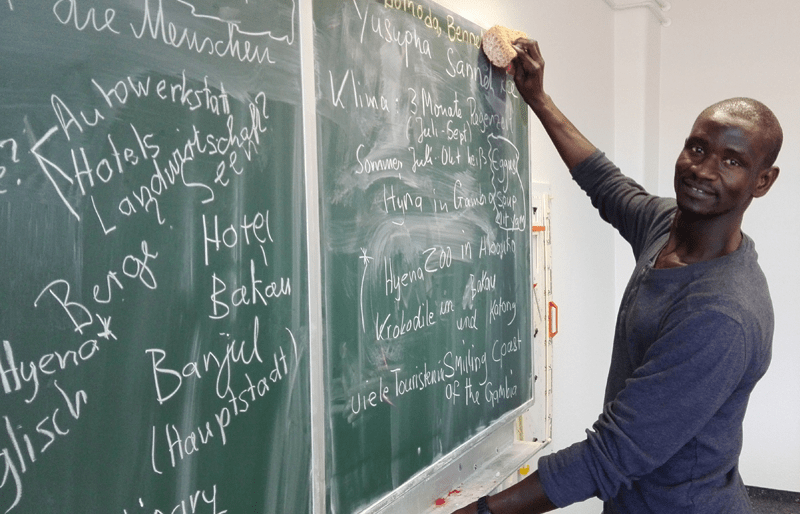 die Menschen
Autowerkstatt
Hotels
Landwirtschaft?
See?
Berge
Hotel
Bakau
Hyena*
Banjul
(Hauptstadt)
glisch
Yusupha
Sanneh
Klima: 3 Monate Regenzeit
(Juli-Sept)
Sommer Juli-Okt heiß
Hyna in Gambia
Soup
* Hyena Zoo in
Krokodile in Bakau
und
viele Touristen Smiling Coast
of the Gambia